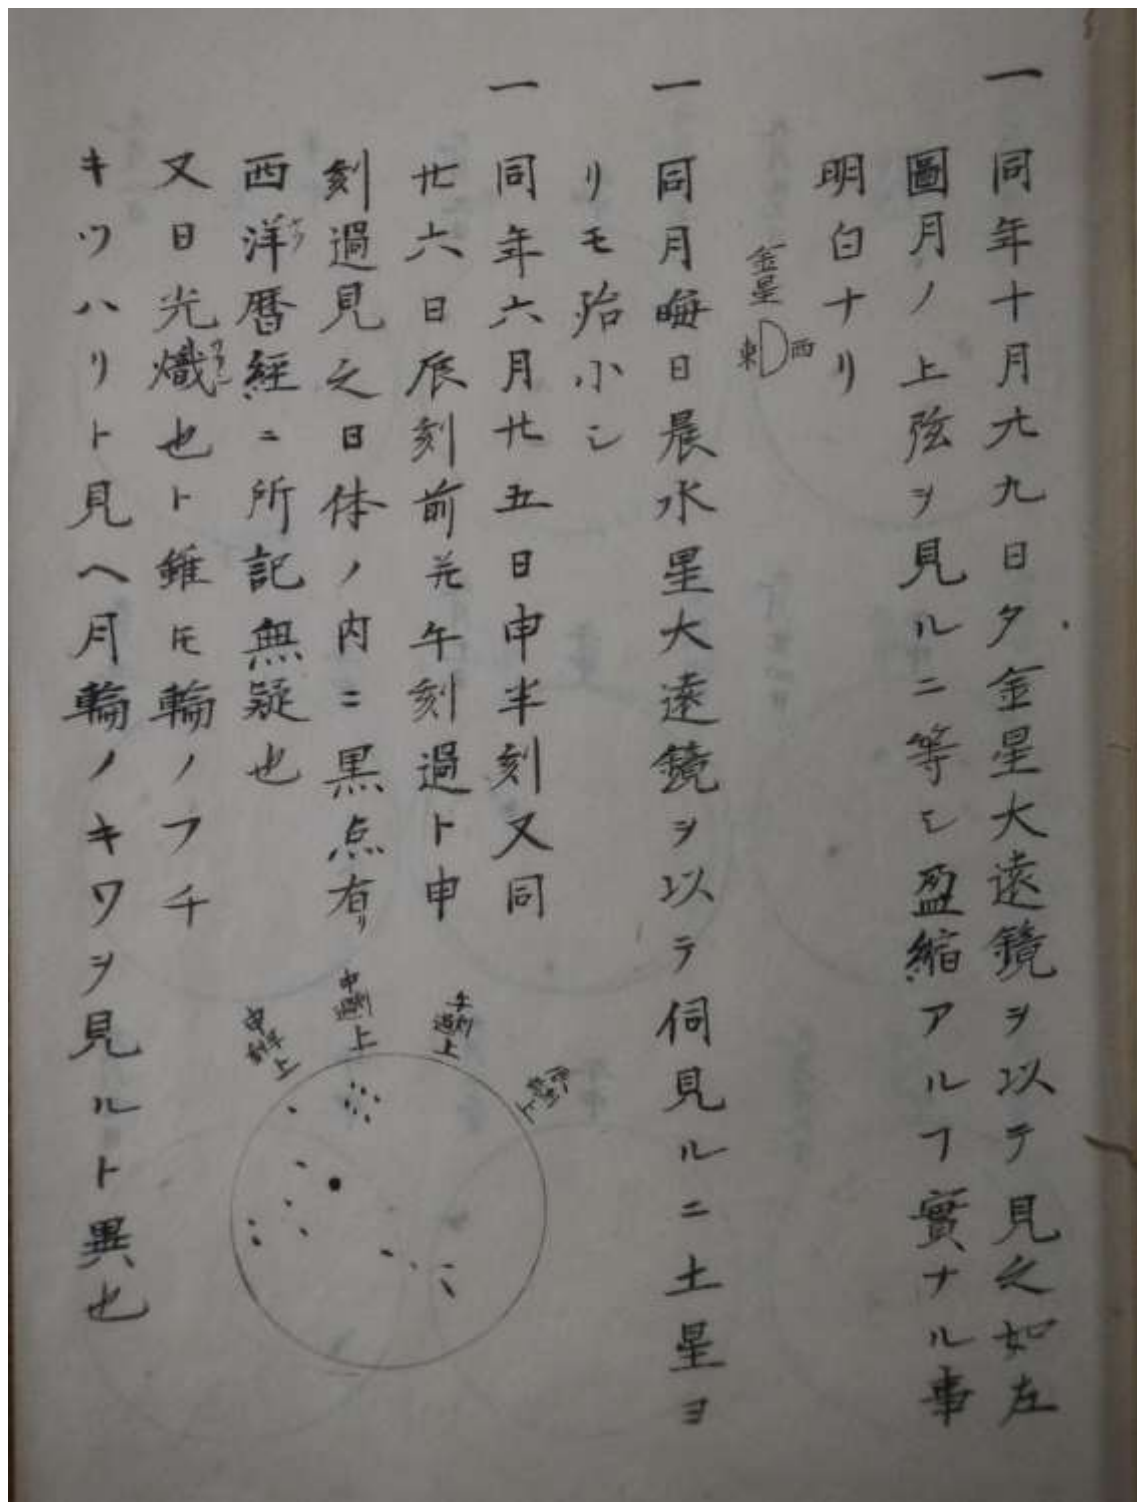 一 同年十月廿九日夕金星大遠鏡ヲ以テ見之如左
圖月ノ上弦ヲ見ルニ等シ盈縮アルヿ實ナル事
明白ナリ
金星
東 西
一 同月晦日晨水星大遠鏡ヲ以テ伺見ルニ土星ヨ
リモ殆小シ
一 同年六月廿五日申半刻又同
廿六日辰刻前ヨリ午刻過ト申
刻過見之日体ノ内ニ黒点有リ
西洋暦経ニ所記無疑也
又日光熾也ト雖モ輪ノフチ
キワハリト見ヘ月輪ノキワヲ見ルト異也
申刻半上
申刻過上
午刻過上